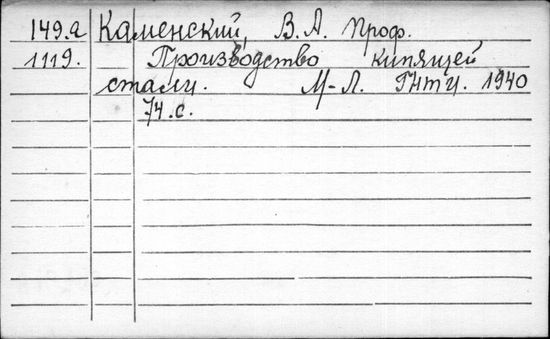 149.а Каменский, В. А. Проф.
1119. Производство кипящей
стали. М-Л. ГНТИ. 1940
74.с.